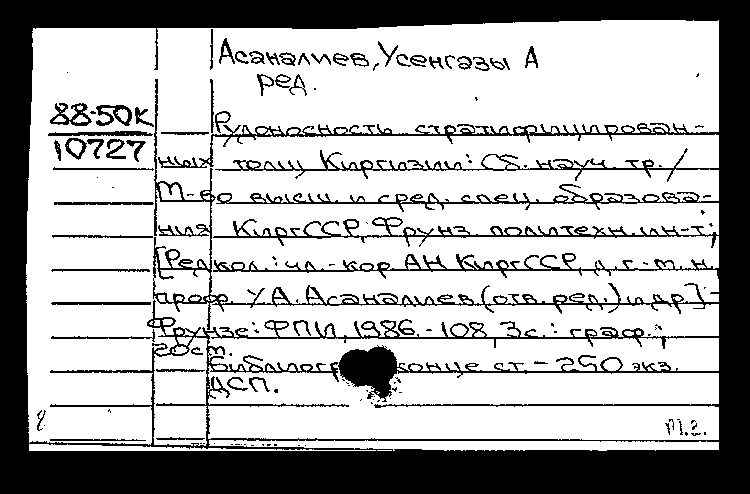 Асаналиев, Усенгазы А
ред.
88-50К
10727
Рудоносность стратифицирован-
ных толщ Киргизии: Сб. науч. тр./
М-во высш. и сред. спец. образова-
ния КиргССР, Фрунз. политехн. ин-т;
[Редкол.: чл.-кор. АН КиргССР, д. г.-м. н.,
проф. У.А. Асаналиев (отв. ред.) и др.]-
Фрунзе: ФПИ, 1986.-108, 3с.: граф.;
20см.
конце ст. - 250 экз.
ДСП.